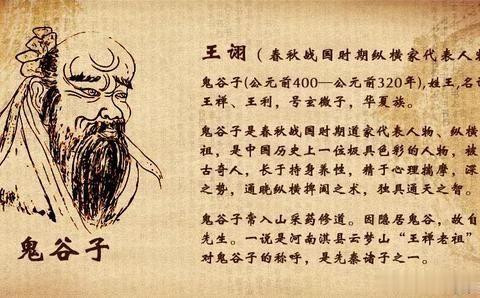 王诩（春秋战国时期纵横家代表人物
鬼谷子(公元前400—公元前320年),姓王,名诩
王禅、王利，号玄微子，华夏族。
鬼谷子是春秋战国时期道家代表人物、纵横
祖，是中国历史上一位极具色彩的人物，被
古奇人，长于持身养性，精于心理揣摩，深
之势，通晓纵横捭阖之术，独具通天之智。
鬼谷子常入山采药修道。因隐居鬼谷，故自
先生。一说是河南淇县云梦山“王禅老祖”
对鬼谷子的称呼，是先秦诸子之一。
鬼谷子